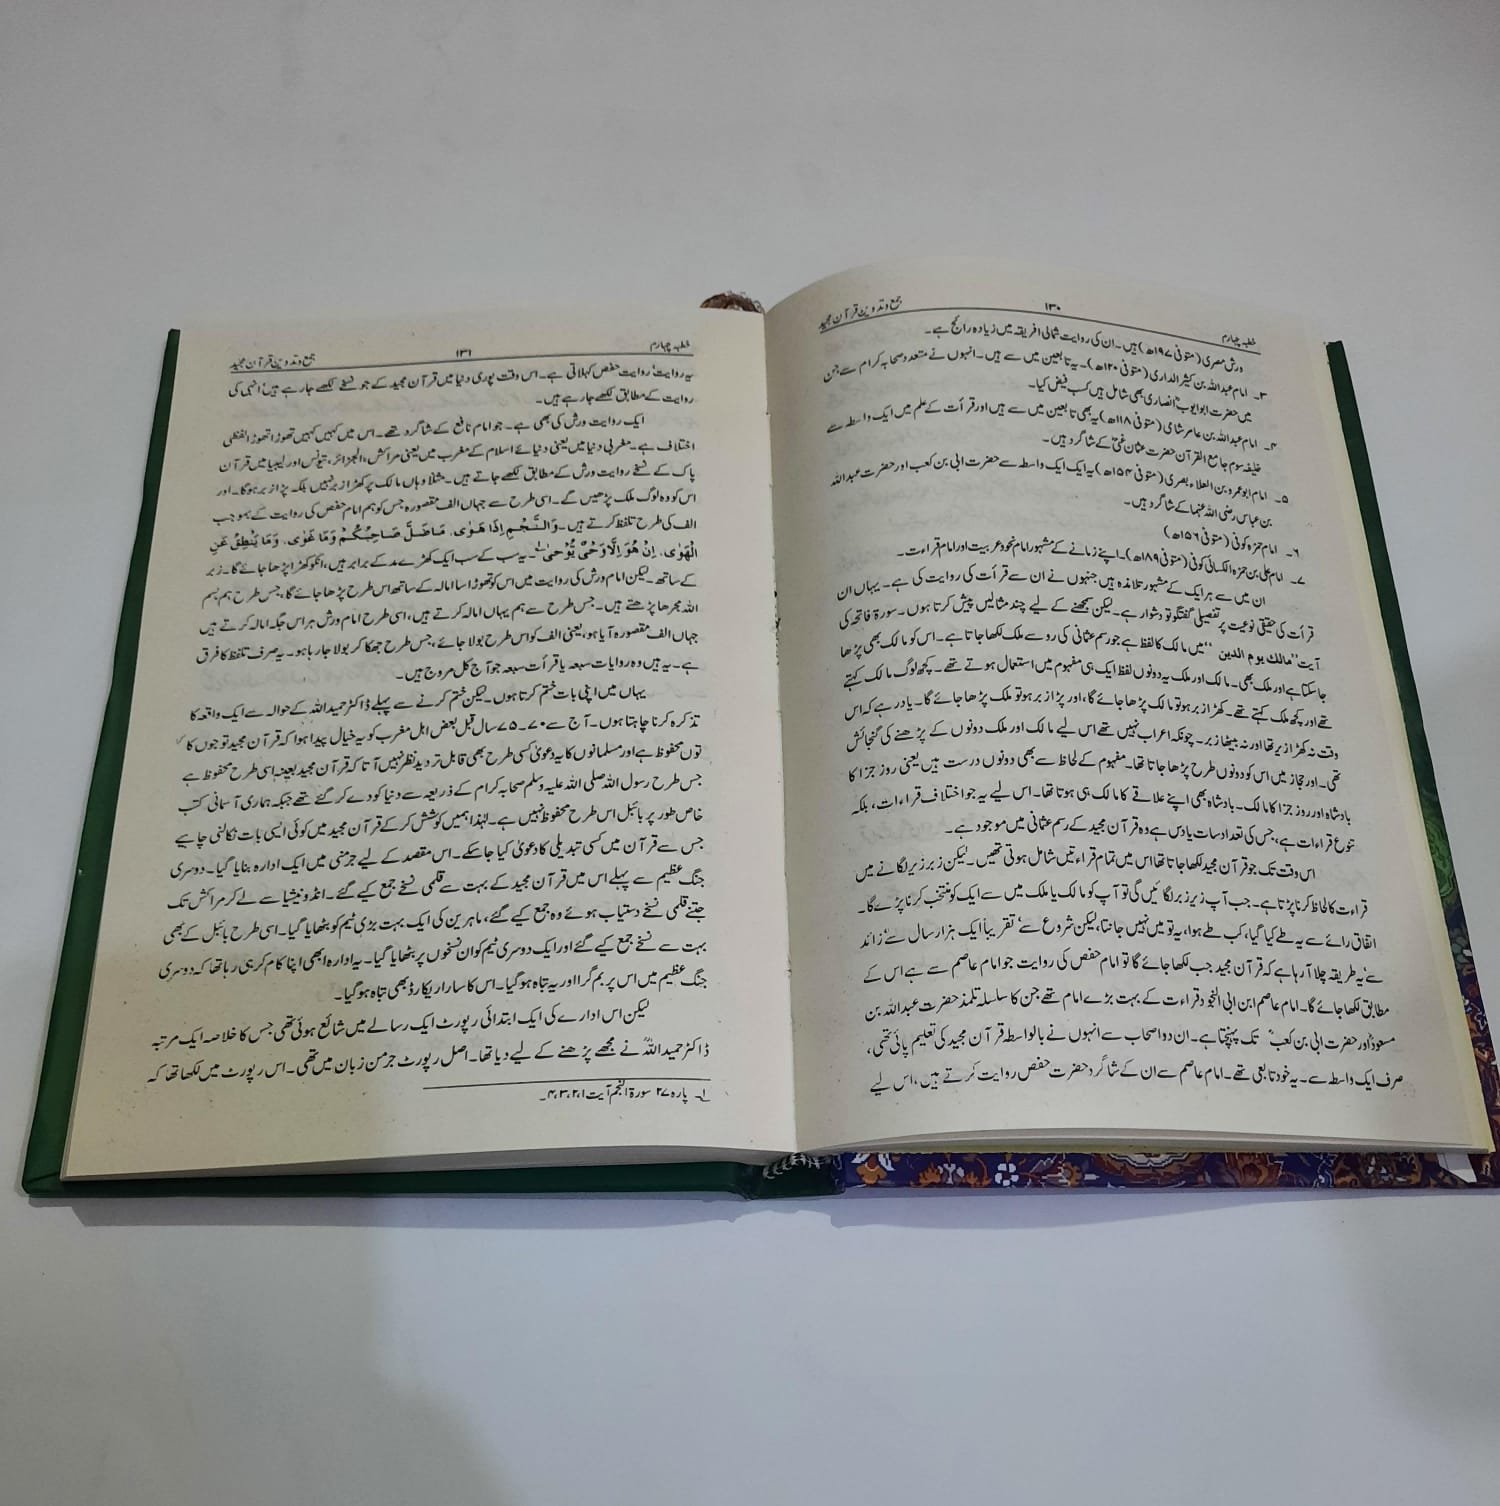 خطبہ چہارم ۱۳۰ جمع و تدوین قرآن مجید
ورش مصری (متوفی ۱۹۷ھ) ہیں۔ ان کی روایت شمالی افریقہ میں زیادہ رائج ہے۔
۳۔ امام عبداللہ بن کثیر الداری (متوفی ۱۲۰ھ)۔ یہ تابعین میں سے ہیں۔ انہوں نے متعدد صحابہ کرام سے جن
میں حضرت ابوایوبؓ انصاری بھی شامل ہیں کسب فیض کیا۔
۴۔ امام عبداللہ بن عامر شامی (متوفی ۱۱۸ھ) یہ بھی تابعین میں سے ہیں اور قرأت کے علم میں ایک واسطہ سے
خلیفہ سوم جامع القرآن حضرت عثمان غنیؓ کے شاگرد ہیں۔
۵۔ امام ابوعمرو بن العلاء بصری (متوفی ۱۵۴ھ) یہ ایک ایک واسطے سے حضرت ابی بن کعب اور حضرت عبداللہ
بن عباس رضی اللہ عنہما کے شاگرد ہیں۔
۶۔ امام حمزہ کوفی (متوفی ۱۵۶ھ)
۷۔ امام علی بن حمزہ الکسائی کوفی (متوفی ۱۸۹ھ)۔ اپنے زمانے کے مشہور امام نحو و عربیت اور امام قراءت۔
ان میں سے ہر ایک کے مشہور تلامذہ ہیں جنہوں نے ان سے قرأت کی روایت کی ہے۔ یہاں ان
قرأت کی حقیقی نوعیت پر تفصیلی گفتگو تو دشوار ہے۔ لیکن سمجھنے کے لیے چند مثالیں پیش کرتا ہوں۔ سورۃ فاتحہ کی
آیت ”مالك یوم الدین“ میں مالک کا لفظ ہے جو رسم عثمانی کی رو سے ملک لکھا جاتا ہے۔ اس کو مالک بھی پڑھا
جاسکتا ہے اور ملک بھی۔ مالک اور ملک یہ دونوں لفظ ایک ہی مفہوم میں استعمال ہوتے تھے۔ کچھ لوگ مالک کہتے
تھے اور کچھ ملک کہتے تھے۔ کھڑا زبر ہو تو مالک پڑھا جائے گا، اور پڑا زبر ہو تو ملک پڑھا جائے گا۔ یاد رہے کہ اس
وقت نہ کھڑا زبر تھا اور نہ بیٹھا زبر۔ چونکہ اعراب نہیں تھے اس لیے مالک اور ملک دونوں کے پڑھنے کی گنجائش
تھی۔ اور حجاز میں اس کو دونوں طرح پڑھا جاتا تھا۔ مفہوم کے لحاظ سے بھی دونوں درست ہیں یعنی روز جزا کا
بادشاہ اور روز جزا کا مالک۔ بادشاہ بھی اپنے علاقے کا مالک ہی ہوتا تھا۔ اس لیے یہ جو اختلاف قراءات، بلکہ
تنوع قراءات ہے، جس کی تعداد سات یا دس ہے وہ قرآن مجید کے رسم عثمانی میں موجود ہے۔
اس وقت تک جو قرآن مجید لکھا جاتا تھا اس میں تمام قراءتیں شامل ہوتی تھیں۔ لیکن زبر زیر لگانے میں
قراءت کا لحاظ کرنا پڑتا ہے۔ جب آپ زبر زیر لگائیں گی تو آپ کو مالک یا ملک میں سے ایک کو منتخب کرنا پڑے گا۔
اتفاق رائے سے یہ طے کیا گیا، کب طے ہوا، یہ تو میں نہیں جانتا، لیکن شروع سے تقریباً ایک ہزار سال سے زائد
سے یہ طریقہ چلا آرہا ہے کہ قرآن مجید جب لکھا جائے گا تو امام حفص کی روایت جو امام عاصم سے ہے اس کے
مطابق لکھا جائے گا۔ امام عاصم ابن ابی النجود قراءت کے بہت بڑے امام تھے جن کا سلسلہ تلمذ حضرت عبداللہ بن
مسعودؓ اور حضرت ابی بن کعبؓ تک پہنچتا ہے۔ ان دو اصحاب سے انہوں نے بالواسطہ قرآن مجید کی تعلیم پائی تھی،
صرف ایک واسطہ سے۔ یہ خود تابعی تھے۔ امام عاصم سے ان کے شاگرد حضرت حفص روایت کرتے ہیں، اس لیے
خطبہ چہارم ۱۳۱ جمع و تدوین قرآن مجید
یہ روایت، روایت حفص کہلاتی ہے۔ اس وقت پوری دنیا میں قرآن مجید کے جو نسخے لکھے جارہے ہیں انہی کی
روایت کے مطابق لکھے جارہے ہیں۔
ایک روایت ورش کی بھی ہے۔ جو امام نافع کے شاگرد تھے۔ اس میں کہیں کہیں تھوڑا تھوڑا لفظی
اختلاف ہے۔ مغربی دنیا میں یعنی دنیائے اسلام کے مغرب میں یعنی مراکش، الجزائر، تیونس اور لیبیا میں قرآن
پاک کے نسخے روایت ورش کے مطابق لکھے جاتے ہیں۔ مثلاً وہاں مالک پر کھڑا زبر نہیں بلکہ پڑا زبر ہوگا۔ اور
اس کو وہ لوگ ملک پڑھیں گے۔ اسی طرح سے جہاں الف مقصورہ جس کو ہم امام حفص کی روایت کے بموجب
الف کی طرح تلفظ کرتے ہیں۔ وَالنَّجْمِ اِذَا هَوٰى، مَا ضَلَّ صَاحِبُكُمْ وَمَا غَوٰى، وَمَا يَنْطِقُ عَنِ
الْهَوٰى، اِنْ هُوَ اِلَّا وَحْىٌ يُّوْحٰى؂۱۔ یہ سب کے سب ایک کھڑے مد کے برابر ہیں، انکو کھڑا پڑھا جائے گا۔ زبر
کے ساتھ۔ لیکن امام ورش کی روایت میں اس کو تھوڑا سا امالہ کے ساتھ اس طرح پڑھا جائے گا، جس طرح ہم بسم
اللہ مجرھا پڑھتے ہیں۔ جس طرح سے ہم یہاں امالہ کرتے ہیں، اسی طرح امام ورش ہر اس جگہ امالہ کرتے ہیں
جہاں الف مقصورہ آیا ہو، یعنی الف کو اس طرح بولا جائے، جس طرح جھکا کر بولا جارہا ہو۔ یہ صرف تلفظ کا فرق
ہے۔ یہ ہیں وہ روایات سبعہ یا قرأت سبعہ جو آج کل مروج ہیں۔
یہاں میں اپنی بات ختم کرتا ہوں۔ لیکن ختم کرنے سے پہلے ڈاکٹر حمید اللہ کے حوالہ سے ایک واقعہ کا
تذکرہ کرنا چاہتا ہوں۔ آج سے ۷۰۔۷۵ سال قبل بعض اہل مغرب کو یہ خیال پیدا ہوا کہ قرآن مجید تو جوں کا
توں محفوظ ہے اور مسلمانوں کا یہ دعویٰ کسی طرح بھی قابل تردید نظر نہیں آتا کہ قرآن مجید بعینہ اسی طرح محفوظ ہے
جس طرح رسول اللہ صلی اللہ علیہ وسلم صحابہ کرام کے ذریعہ سے دنیا کو دے کر گئے تھے جبکہ ہماری آسمانی کتب
خاص طور پر بائبل اس طرح محفوظ نہیں ہے۔ لہٰذا ہمیں کوشش کرکے قرآن مجید میں کوئی ایسی بات نکالنی چاہیے
جس سے قرآن میں کسی تبدیلی کا دعویٰ کیا جاسکے۔ اس مقصد کے لیے جرمنی میں ایک ادارہ بنایا گیا۔ دوسری
جنگ عظیم سے پہلے اس میں قرآن مجید کے بہت سے قلمی نسخے جمع کیے گئے۔ انڈونیشیا سے لے کر مراکش تک
جتنے قلمی نسخے دستیاب ہوئے وہ جمع کیے گئے، ماہرین کی ایک بہت بڑی ٹیم کو بٹھایا گیا۔ اسی طرح بائبل کے بھی
بہت سے نسخے جمع کیے گئے اور ایک دوسری ٹیم کو ان نسخوں پر بٹھایا گیا۔ یہ ادارہ ابھی اپنا کام کر ہی رہا تھا کہ دوسری
جنگ عظیم میں اس پر بم گرا اور یہ تباہ ہوگیا۔ اس کا سارا ریکارڈ بھی تباہ ہوگیا۔
لیکن اس ادارے کی ایک ابتدائی رپورٹ ایک رسالے میں شائع ہوئی تھی جس کا خلاصہ ایک مرتبہ
ڈاکٹر حمید اللہؒ نے مجھے پڑھنے کے لیے دیا تھا۔ اصل رپورٹ جرمن زبان میں تھی۔ اس رپورٹ میں لکھا تھا کہ
۱۔ پارہ ۲۷ سورۃ النجم آیت ۴،۳،۲،۱۔